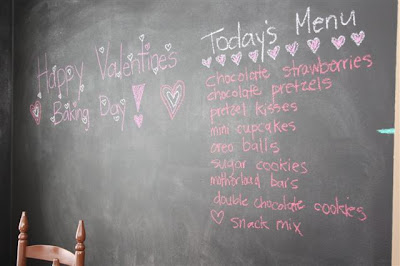 Happy Valentines
Baking Day!
Today's Menu
chocolate strawberries
chocolate pretzels
pretzel kisses
mini cupcakes
oreo balls
sugar cookies
motherload bars
double chocolate cookies
snack mix